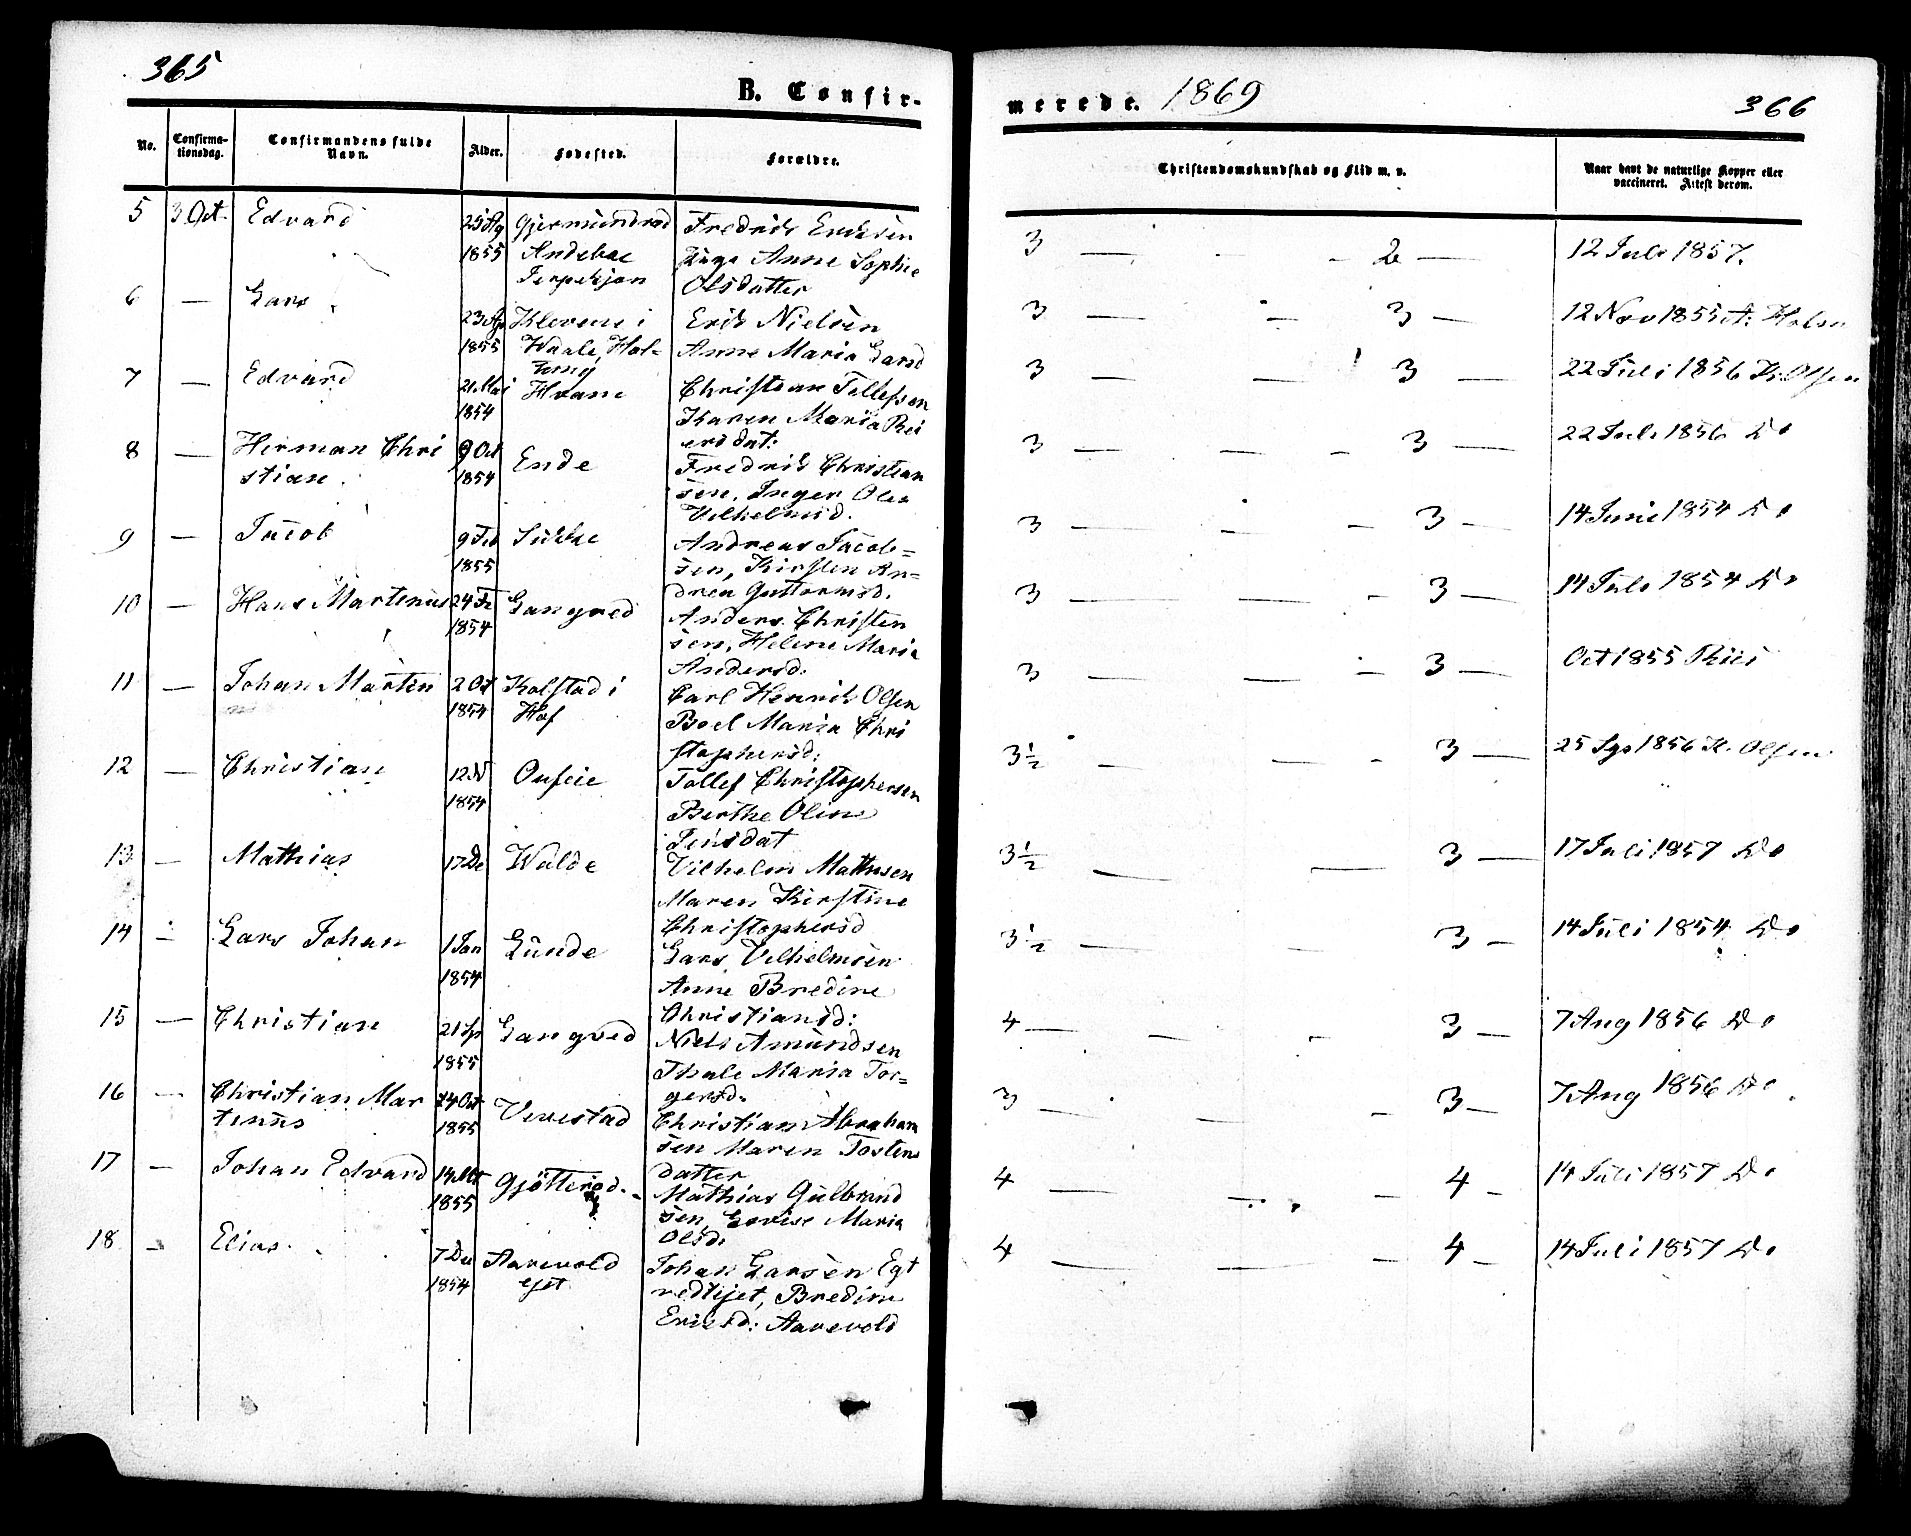 365
B. Confir-
No.
Confirma-
tionsdag.
Confirmandens fulde
Navn.
Alder.
Fødested.
Forældre.
5 3 Oct. Edvard
25 Ag
1855
Gjermundrød
Andebue
Fredrik Eriksen
Anne Sophie
Olsdatter
6 — Lars
23 Ag
1855
Klevene i
Waale, Hal-
Erik Nielsen
Anne Maria Larsd
7 — Edvard
21 Mai
1854
Hvam
Christian Tollefsen
Karen Maria Rei
ersdat:
8 — Herman Chri
stian
9 Oct
1854
Ende
Fredrik Christian
sen, Inger Olea
Vilhelmsd.
9 — Jacob
9 Feb
1855
Andreas Jacob=
sen, Kirsten An=
drea Guttormsd.
10 — Hans Martinus
24 Fe
1854
Langved
Anders Christen
sen, Helene Maria
Andersd:
11 — Johan Martin
2 Oct
1854
Kolstad i
Hof
Carl Henrik Olsen
Boel Maria Chri
stophersd:
12 — Christian
12 N
1854
Tollef Christophersen
Berthe Oline
Jensdat
13 — Mathias
17 De
Walde
Vilhelm Mathisen
Maren Kirstine
Christophersd
14 — Lars Johan
1 Jan
1854
Lunde
Lars Vilhelmsen
Anne Bredine
Christiansd:
15 — Christian
21 Sp
1855
Langved
Niels Amundsen
Thale Maria Tor=
gersd.
16 — Christian Mar
tinus
24 Oct
1855
Vivestad
Christian Abraham
sen Maren Tostens
datter
17 — Johan Edvard
1855
Gjötterød.
Mathias Gulbrand
sen, Lovise Maria
Olsd.
18 — Elias
7 De
1854
Aarevold
ejet
Johan Larsen Egt
vedtejet, Bredine
Eriksd: Aarevold
merede. 1869
366
Christendomskundskab og Flid m. v.
Naar havt de naturlige Kopper eller
vaccineret. Attest derom.
3 — 2 — 12 Juli 1857.
3 — 3 — 12 Nov 1855 A: Holm
3 — 3 — 22 Juli 1856 K. Olsen
3 — 3 — 22 Juli 1856 Do
3 — 3 — 14 Juni 1854 Do
3 — 3 — 14 Juli 1854 Do
3 — 3 — Oct 1855 Thiis
3½ — 3 — 25 Sp 1856 K. Olsen
3½ — 3 — 17 Juli 1857 Do
3½ — 3 — 14 Juli 1854 Do
4 — 3 — 7 Aug 1856 Do
3 — 3 — 7 Aug 1856 Do
4 — 4 — 14 Juli 1857 Do
4 — 4 — 14 Juli 1857 Do